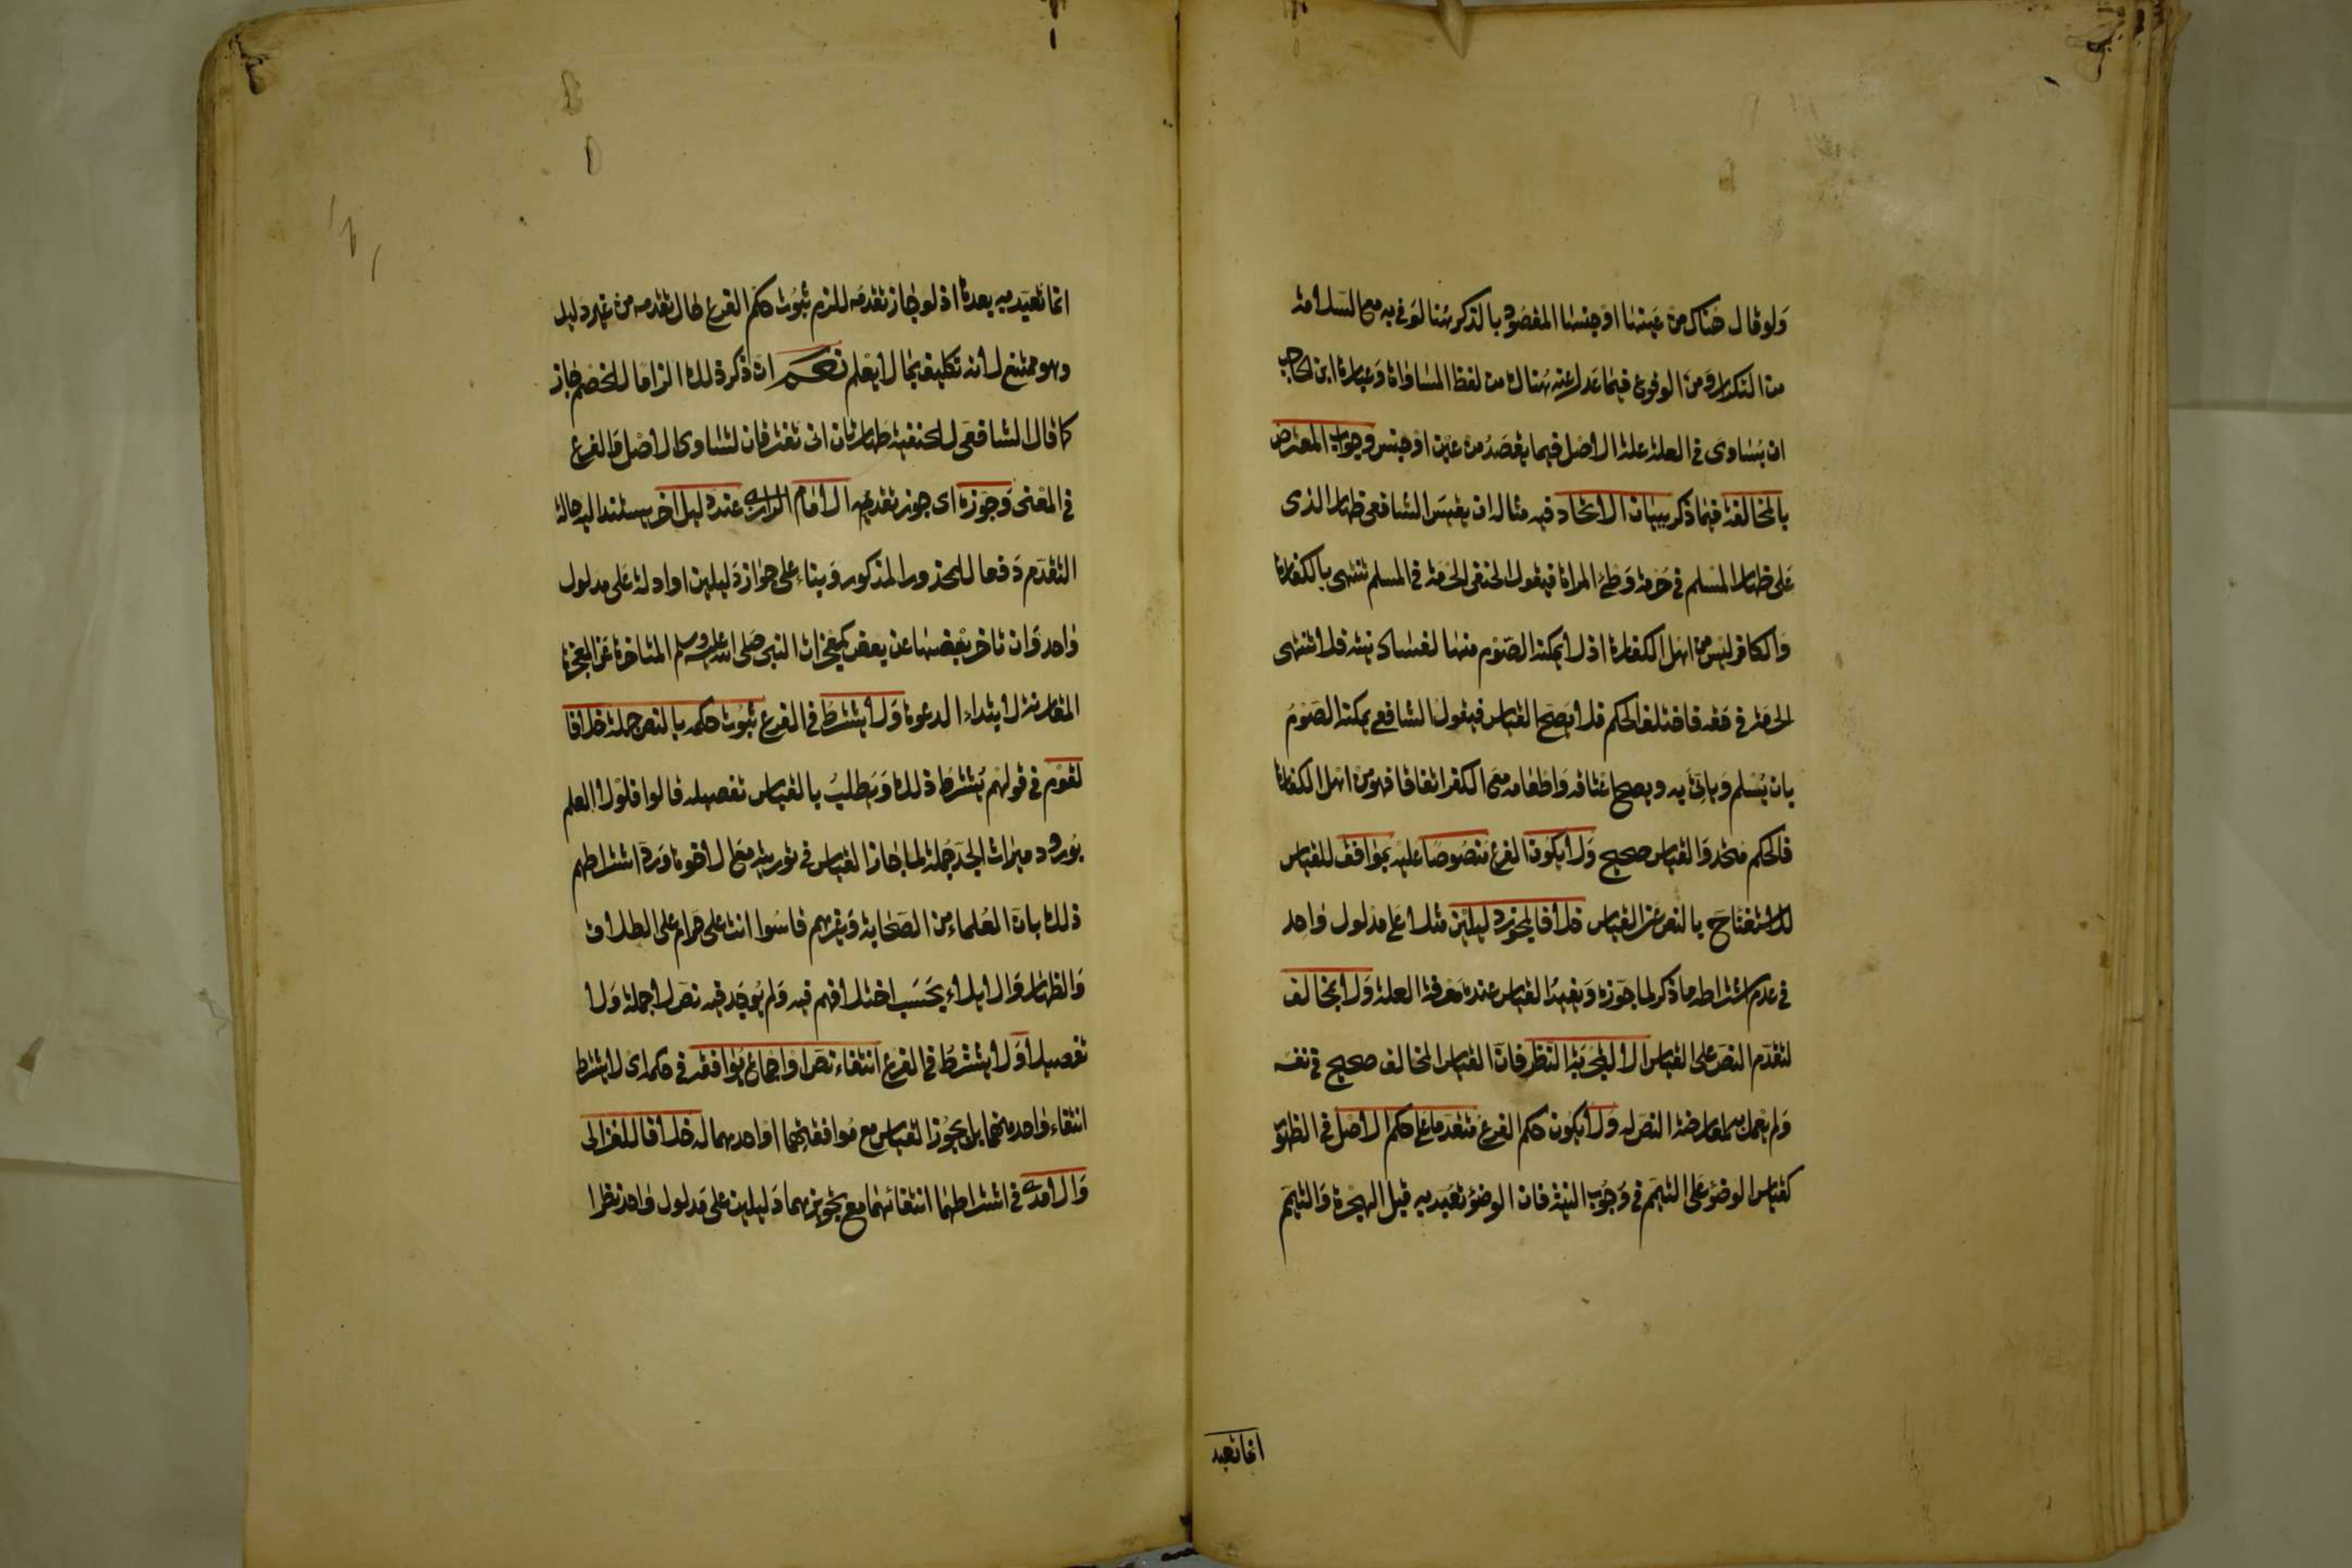 ولو قال هناك من عينها او جنسها المقصود بالذكر هنا لوفى به مع السلامة
من التكرار ومن الوقوع فيما عدل عنه هناك من لفظ المساواة وعبارة ابن الحاجب
ان يساوى في العلة علة الاصل فيما يقصد من عين او جنس وجواب المعترض
بالمخالفة فيما ذكر ببيان الاتحاد فيه مثاله ان يقيس الشافعى ظهار الذمى
على ظهار المسلم في حرمة وطئ المراة فيقول الحنفى الحرمة في المسلم تنتهى بالكفارة
والكافر ليس من اهل الكفارة اذ لا يمكنه الصوم منها لفساد نيته فلا تنتهى
الحرمة في حقه فاختلف الحكم فلا يصح القياس فيقول الشافعي يمكنه الصوم
بان يسلم وياتى به ويصح اعتاقه واطعامه مع الكفر اتفاقا فهو من اهل الكفارة
فالحكم متحد والقياس صحيح ولا يكون الفرع منصوصا عليه بموافق للقياس
للاستغناء ح بالنص عن القياس خلافا لمجوز دليلين مثلا على مدلول واحد
في عدم اشتراطه ما ذكر لما جوزه ويفيد القياس عنده معرفة العلة ولا بمخالف
لتقدم النص على القياس الا لتجربة النظر فان القياس المخالف صحيح في نفسه
ولم يعمل به لمعارضة النص له ولا يكون حكم الفرع متقدما على حكم الاصل في الظهور
كقياس الوضوء على التيمم في وجوب النية فان الوضوء تعبد به قبل الهجرة والتيمم
انما تعبد
انما تعبد به بعدها اذ لو جاز تقدمه للزم ثبوت حكم الفرع حال تقدمه من غير دليل
وهو ممتنع لانه تكليف بما لا يعلم نعم ان ذكر ذلك الزاما للخصم جاز
كما قال الشافعى للحنفية طهارتان انى تفترقان لتساوى الاصل والفرع
في المعنى وجوزه اى جوز تقديمه الامام الرازى عند دليل اخر يستند اليه حالة
التقدم دفعا للمحذور المذكور وبناء على جواز دليلين او ادلة على مدلول
واحد وان تاخر بعضها عن بعض كمعجزات النبى صلى الله عليه وسلم المتاخرة عن المعجزة
المقارنة لابتداء الدعوة ولا يشترط في الفرع ثبوت حكمه بالنص جملة خلافا
لقوم في قولهم يشترط ذلك ويطلب بالقياس تفصيله قالوا فلولا العلم
بورود ميراث الجد جملة لما جاز القياس في توريثه مع الاخوة ورد اشتراطهم
ذلك بان العلماء من الصحابة وغيرهم قاسوا انت على حرام على الطلاق
والظهار والايلاء بحسب اختلافهم فيه ولم يوجد فيه نص لا جملة ولا
تفصيلا ولا يشترط في الفرع انتفاء نص او اجماع يوافقه في حكم اى لا يشترط
انتفاء واحد منهما بل يجوز القياس مع موافقتهما او احدهما له خلافا للغزالى
والامدى في اشتراطهما انتفائهما مع تجويزهما دليلين على مدلول واحد نظرا